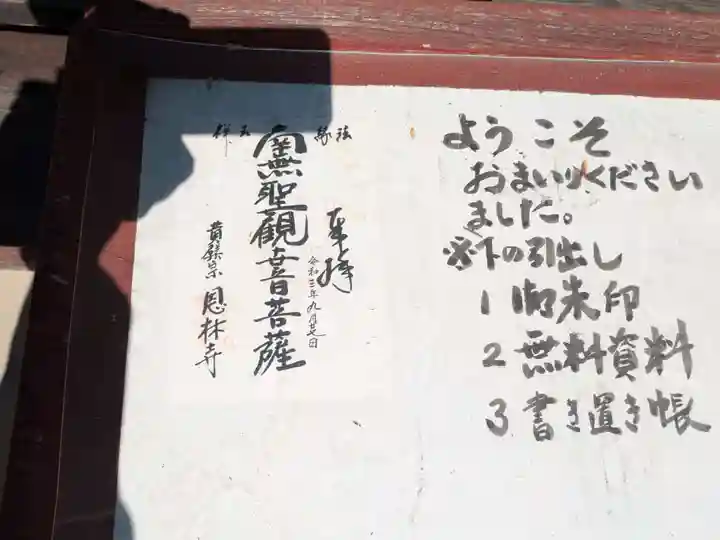 ようこそ
おまいりくださいました。
※下の引出し
1 御朱印
2 無料資料
3 書き置き帳
奉拝
令和三年九月廿七日
南無聖観音菩薩
黄檗宗 恩林寺